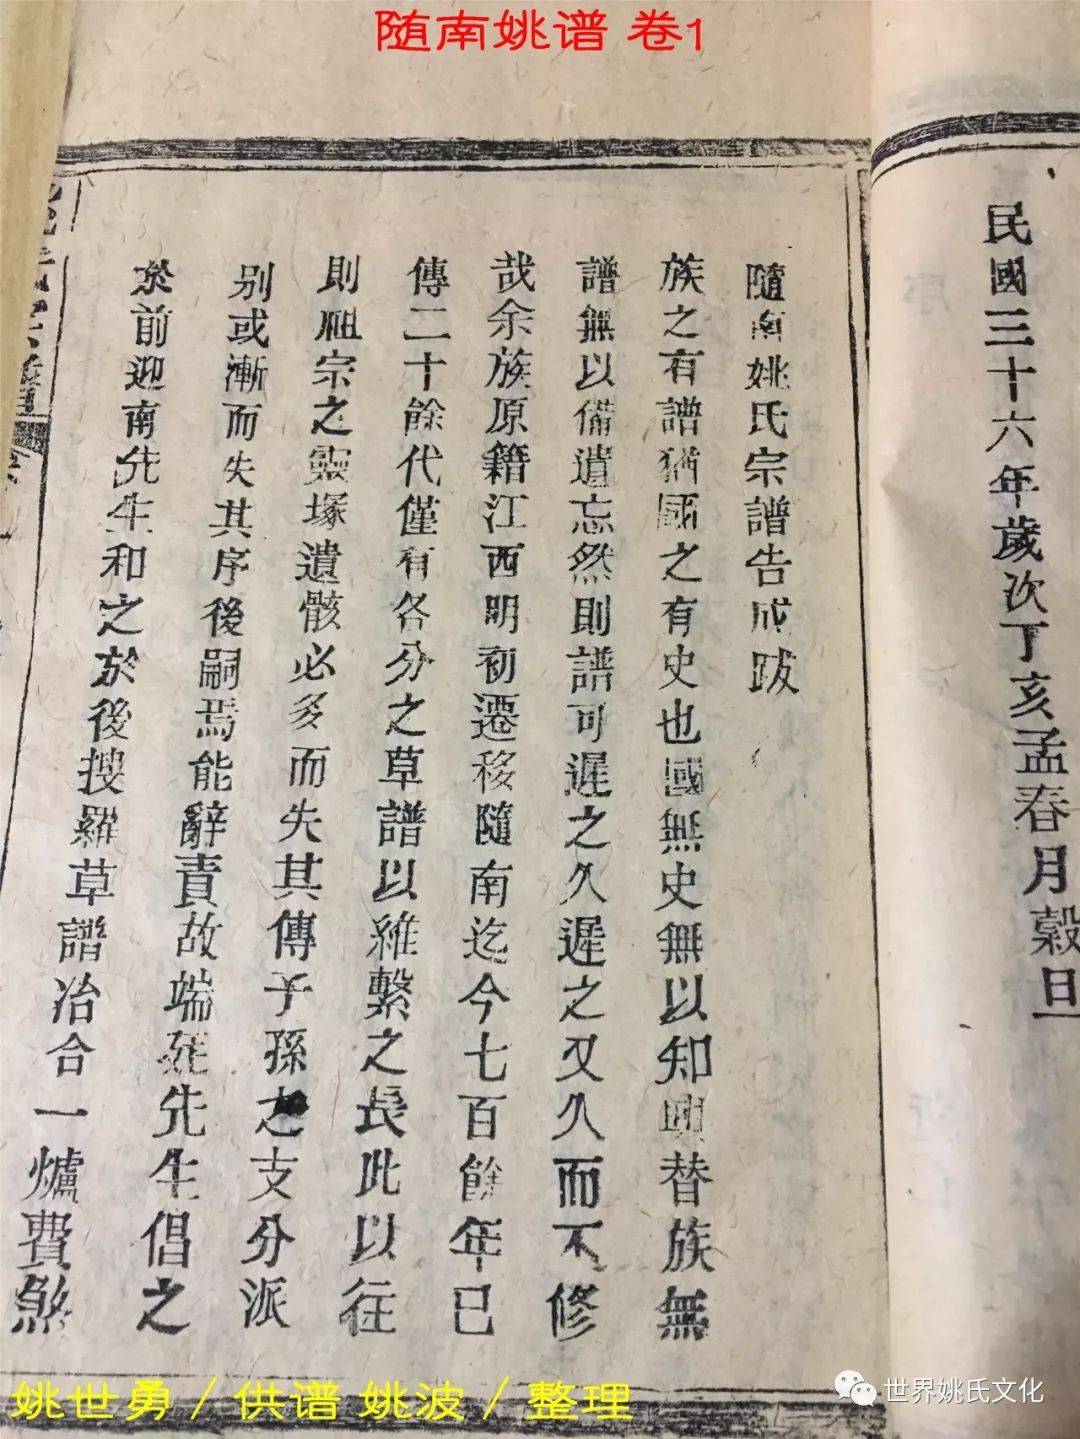 随南姚谱 卷1
民國三十六年歲次丁亥孟春月穀旦
隨南姚氏宗譜告成跋
族之有譜猶國之有史也國無史無以知興替族無
譜無以備遺忘然則譜可遲之久遲之又久而不修
哉余族原籍江西明初遷移隨南迄今七百餘年已
傳二十餘代僅有各分之草譜以維繫之長此以往
則祖宗之靈塚遺骸必多而失其傳子孫之支分派
别或漸而失其序後嗣焉能辭責故端廷先生倡之
於前迎南先生和之於後搜羅草譜冶合一爐費煞
姚世勇／供谱 姚波／整理
世界姚氏文化